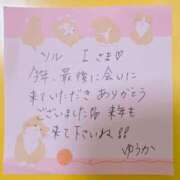 ソル Iさま♡
今年最後に会いに
来ていただきありがとう
ございました😊来年も
来て下さいね!!
ゆうか